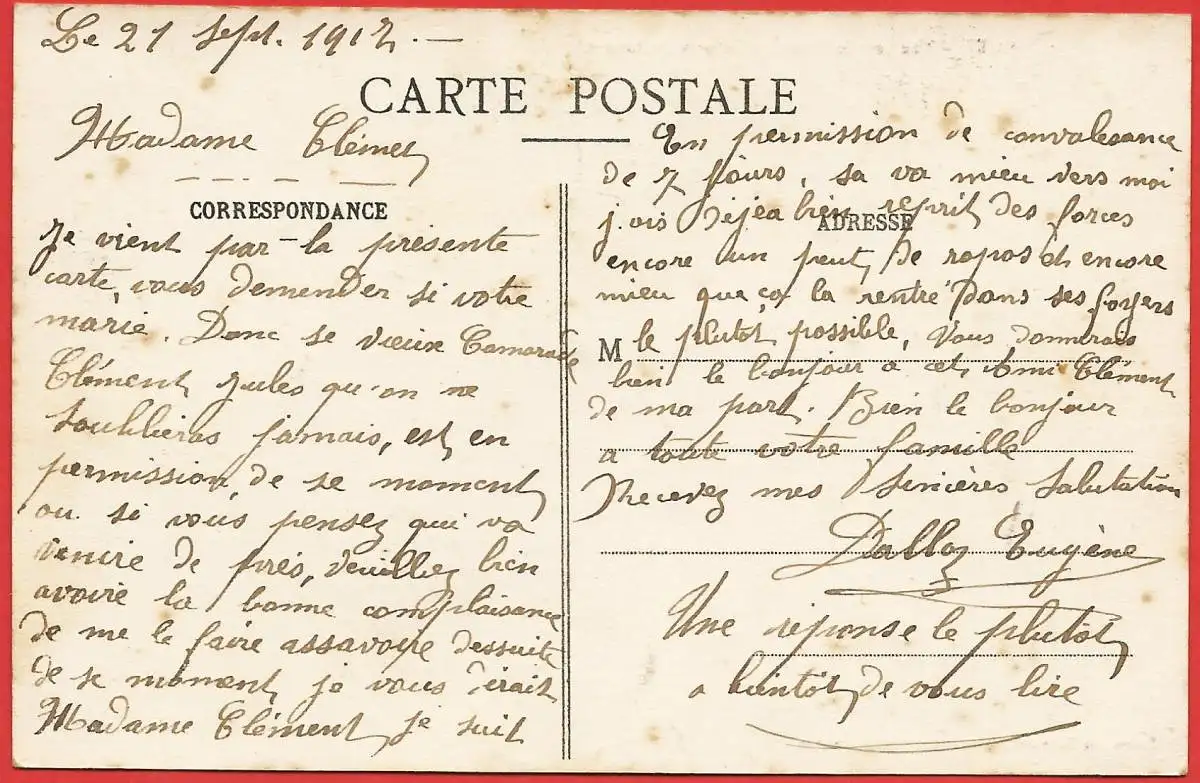 Le 21 Sept. 1917. —
CARTE POSTALE
Madame Clément
CORRESPONDANCE
Je vient par-la présente
carte, vous demender si votre
marie. Donc se vieux Camarade
Clément Jules qu'on ne
soublieras jamais, est en
permission, de se moment
ou si vous pensez qui va
venire de près, veuillez bien
avoire la bonne complaisance
de me le faire assavoire dessuite
de se moment je vous dirait
Madame Clément je suit
En permission de convalesance
de 7 jours, sa va mieu vers moi
j.ois déjea bien reprit des forces
ADRESSE
encore un peut de repos et encore
mieu que ça la rentré dans ses foyers
M
le plutot possible, Vous donnerais
bien le bonjour a cet Ami Clément
de ma part. Bien le bonjour
a toute votre famille
Recevez mes sinières Salutation
Dalloz Eugène
Une réponse le plutôt
a bientôt de vous lire